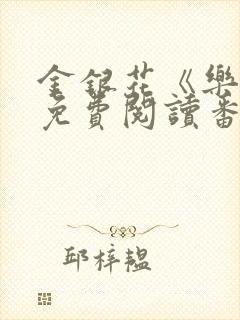 金銀花《樂
免費閱讀番
邱梓韞